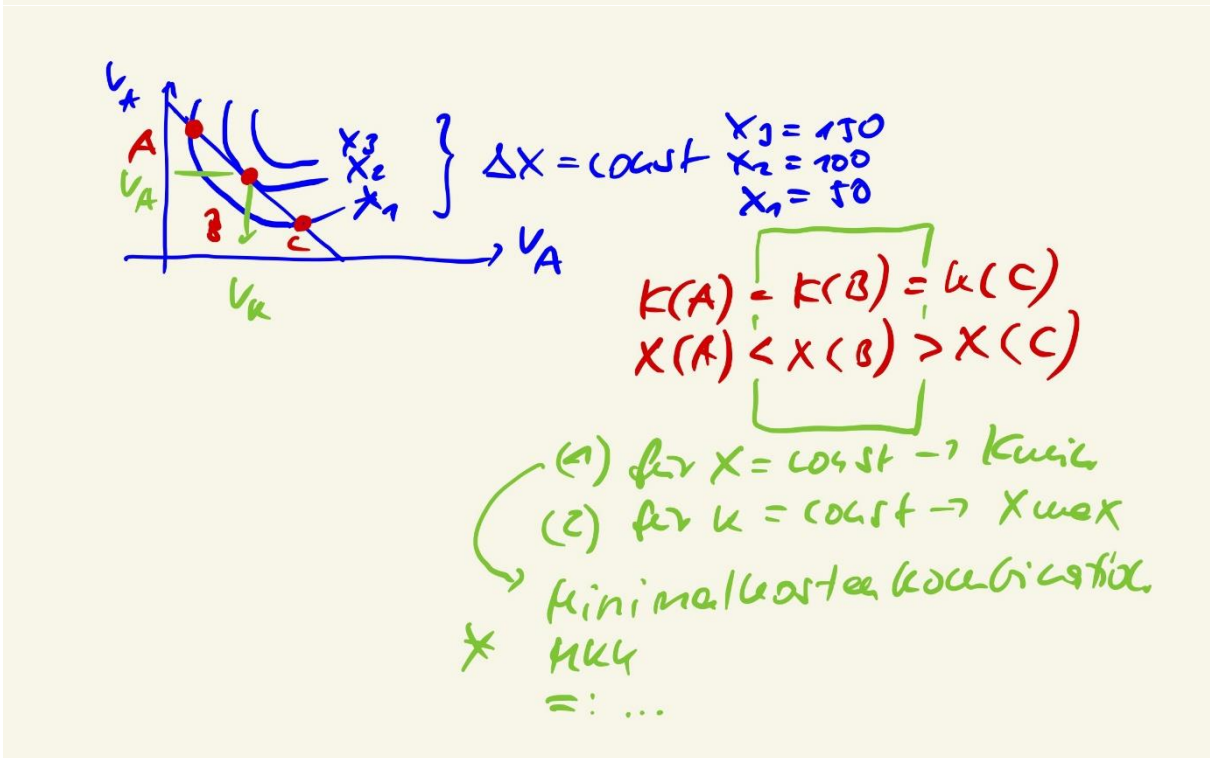 V_A
A
V_A
B
C
V_K
X3
X2
X1
V_A
ΔX = const
X3 = 150
X2 = 100
X1 = 50
K(A) = K(B) = K(C)
X(A) < X(B) > X(C)
(1) für X = const → Kmin
(2) für K = const → Xmax
Minimalkostenkombination
* MKK
=: ...